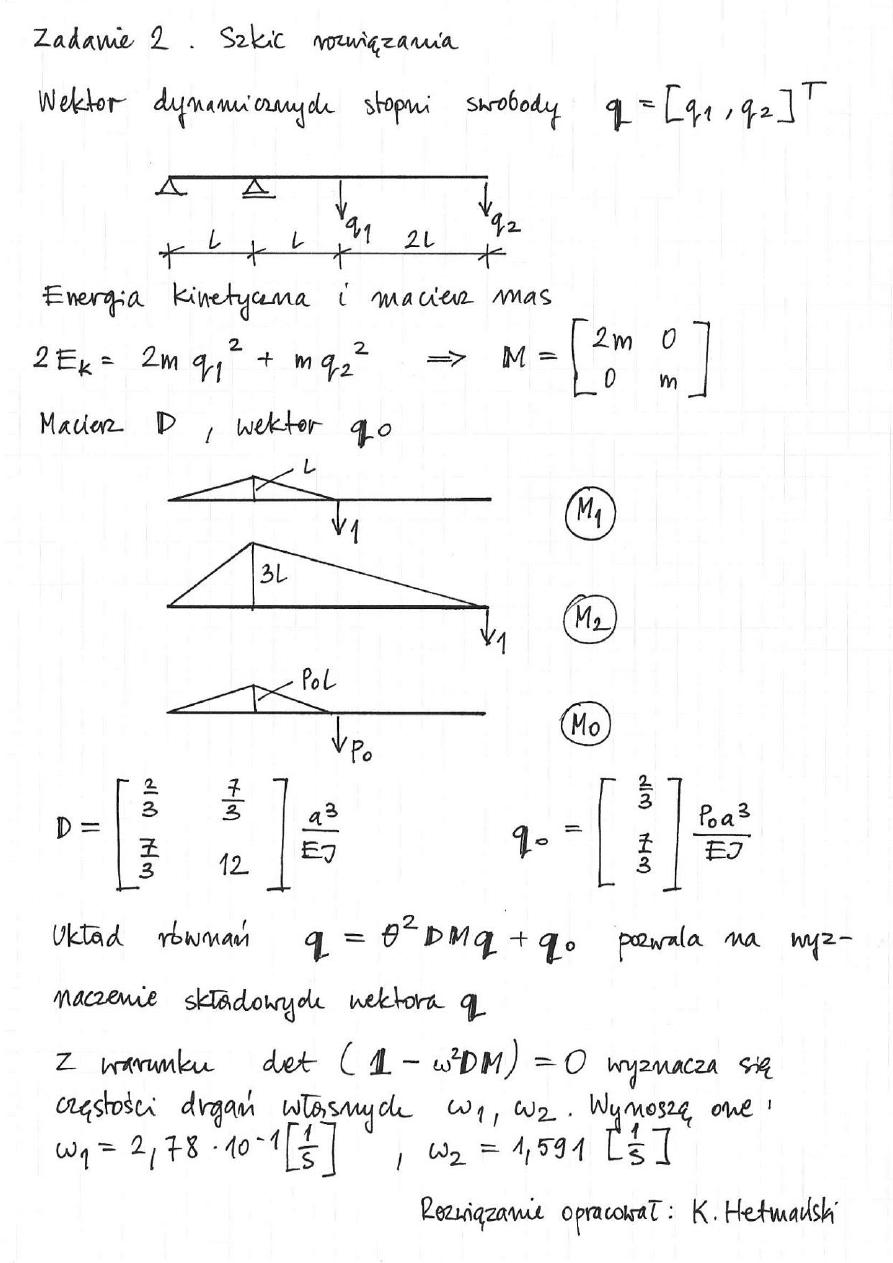 Zadanie 2 . Szkic rozwiązania
Wektor dynamicznych stopni swobody q = [q1 , q2]^T
q1 q2
L L 2L
Energia kinetyczna i macierz mas
2Ek = 2m q1^2 + m q2^2 => M = [2m 0; 0 m]
Macierz D , wektor q0
L
1 M1
3L
1 M2
P0L
P0 M0
D = [2/3 7/3; 7/3 12] a^3/EJ q0 = [2/3; 7/3] P0a^3/EJ
Układ równań q = θ^2 DMq + q0 pozwala na wyz-
naczenie składowych wektora q
Z warunku det (1 - ω^2DM) = 0 wyznacza się
częstości drgań własnych ω1, ω2. Wynoszą one:
ω1 = 2,78 · 10^-1 [1/s] , ω2 = 1,591 [1/s]
Rozwiązanie opracował: K. Hetmański